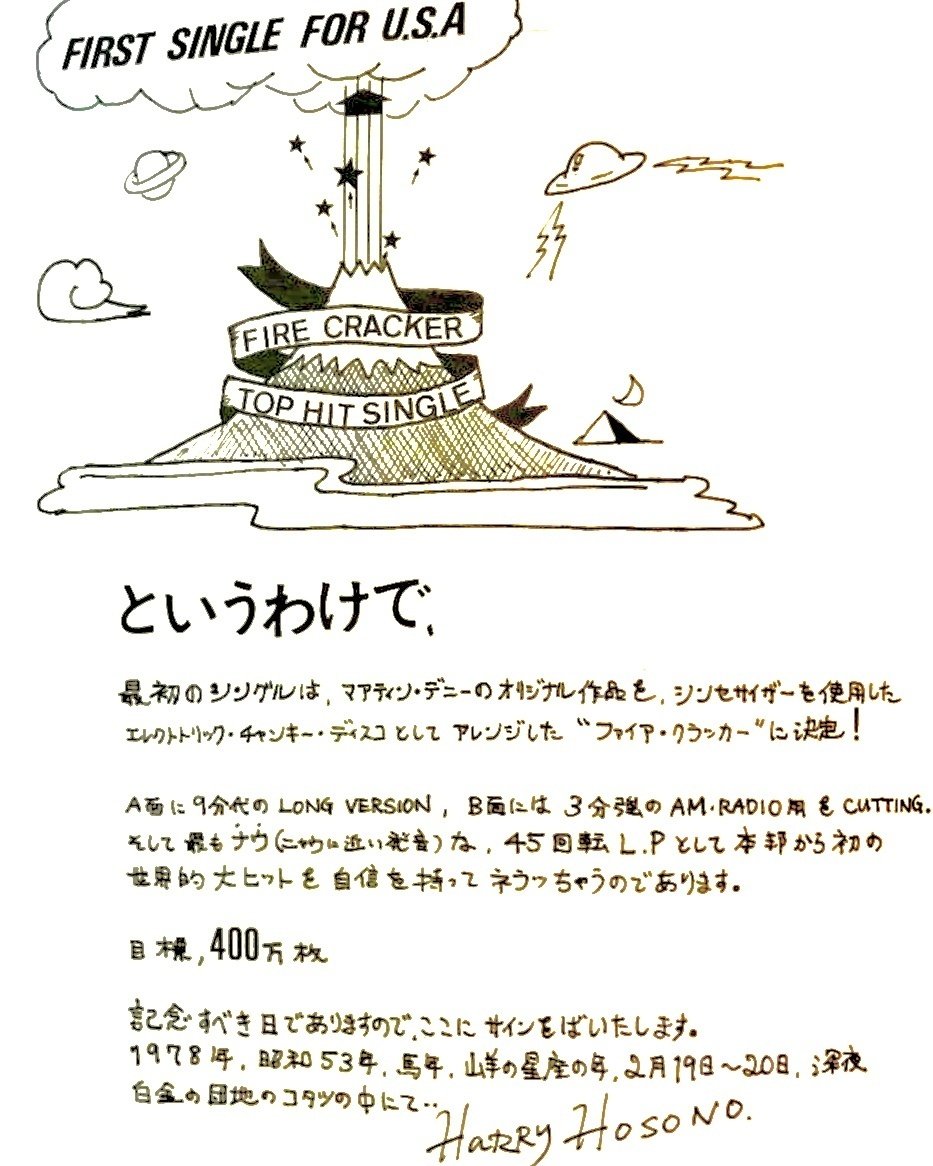 FIRST SINGLE FOR U.S.A
FIRE CRACKER
TOP HIT SINGLE
というわけで、
最初のシングルは、マアティン・デニーのオリジナル作品を、シンセサイザーを使用した
エレクトトリック・チャンキー・ディスコとしてアレンジした“ファイア・クラッカー”に決定!
A面に9分代のLONG VERSION, B面には3分強のAM・RADIO用をCUTTING.
そして最もナウ(ニャウに近い発音)な、45回転L.Pとして本邦から初の
世界的大ヒットを自信を持ってネラッちゃうのであります。
目標,400万枚
記念すべき日でありますので、ここにサインをばいたします。
1978年、昭和53年、馬年、山羊の星座の年、2月19日〜20日、深夜
白金の団地のコタツの中にて・・
HARRY HOSONO.